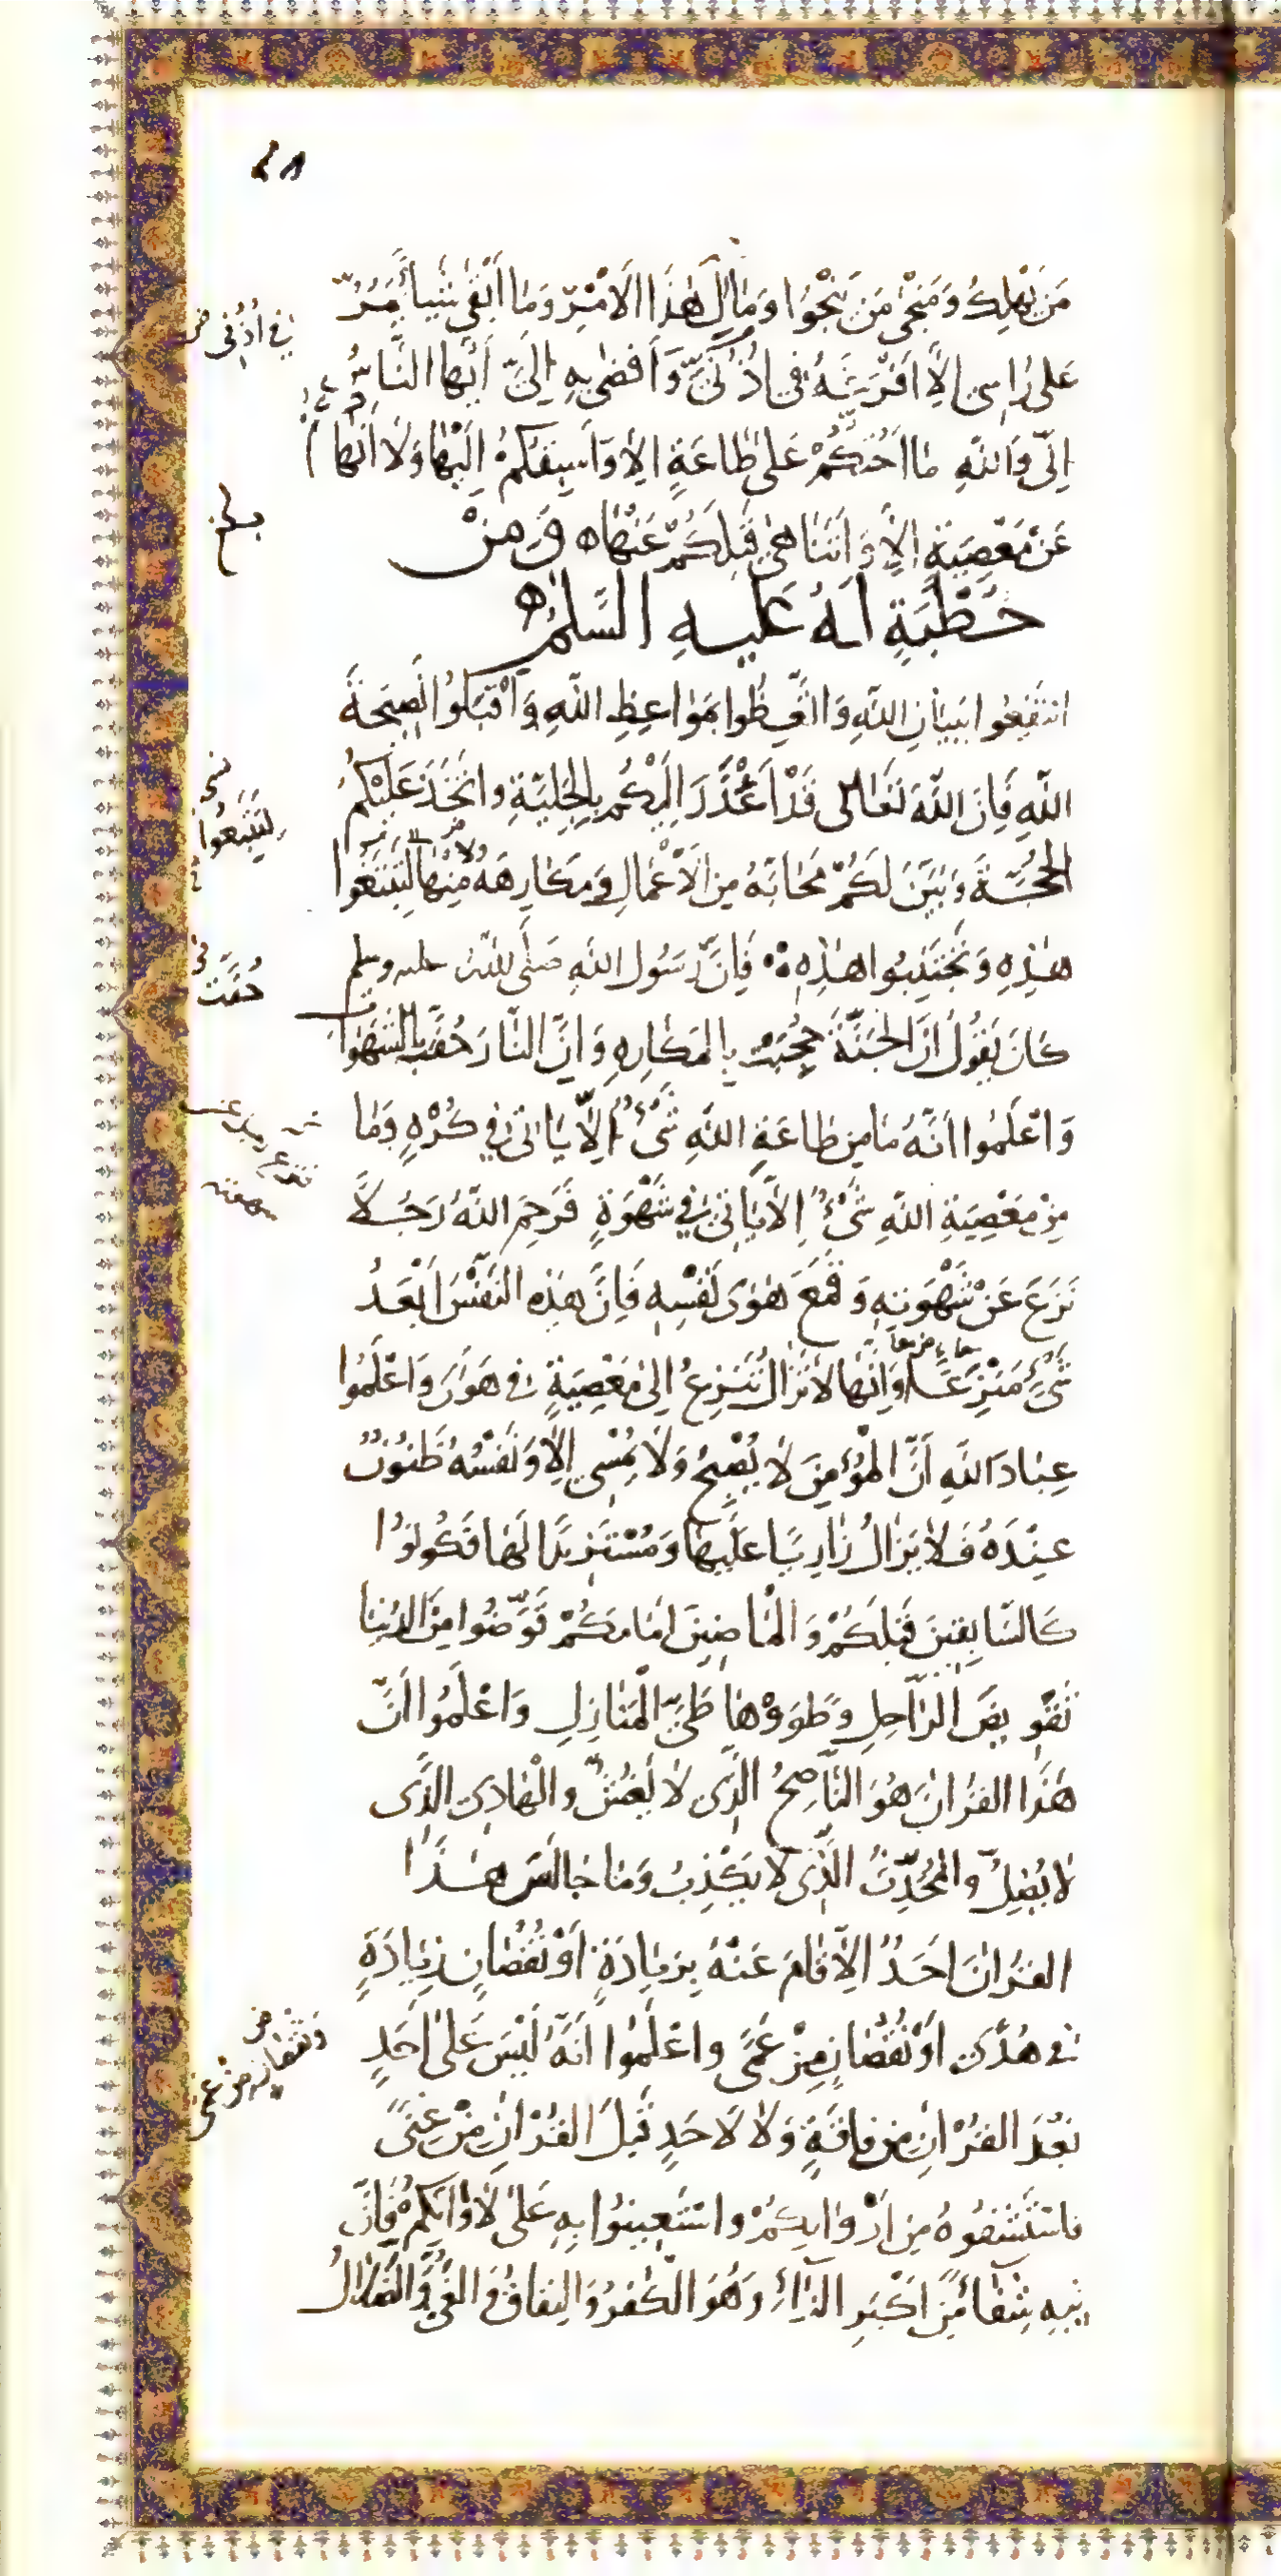 ٤٨
مَن يَهْلِكُ وَمَنجٰى مَن يَنجُوا وَمٰالِ هٰذَا الاَمْرِ وَمٰا اَبْقٰى شَيأً يَمُرُّ
فى اُذُنى
عَلى رٰاسِى اِلّا اَفْرَغَهُ فى اُذُنَىَّ وَاَفضٰى بِهِ اِلَىَّ اَيُّهَا النَّاسُ
اِنّى وَاللهِ مٰا اَحُثُّكُمْ عَلىٰ طٰاعَةٍ اِلاّٰ وَاَسبِقُكُمْ اِلَيْهٰا وَلٰا اَنْهاكُمْ
عَنْ مَعْصِيَةٍ اِلاّٰ وَاَتَنٰاهىٰ قَبلَكُمْ عَنْهٰا ه وَمِنْ
بلغ
خُطْبَةٍ لَهُ عَلَيهِ السَّلٰمُ ه
انتَفِعُوا بِبَيٰانِ اللهِ وَاتَّعِظُوا بِمَوٰاعِظِ اللهِ وَاقْبَلُوا نَصِيحَةَ
اللهِ فَاِنَّ اللهَ تَعٰالى قَدْ اَعْذَرَ اِلَيْكُم بِالجَلِيَّةِ وَاتَّخَذَ عَلَيْكُمُ
لِتَتَّبِعُوا
الحُجَّةَ وَبَيَّنَ لَكُمْ مَحٰابَّهُ مِنَ الاَعْمٰالِ وَمَكٰارِهَهُ مِنْهٰا لِتَبْتَغُوا
هٰذِهِ وَتَجْتَنِبُوا هٰذِهِ ه فَاِنَّ رَسُولَ اللهِ صَلَّى اللهُ عليه وسلم
حُفَّتْ
كَانَ يَقُولُ اِنَّ الجَنَّةَ حُجِبَتْ بِالمَكٰارِهِ وَاِنَّ النّٰارَ حُفَّت بِالشَّهَوٰاتِ
وَاعْلَمُوا اَنَّهُ مٰا مِن طٰاعَةِ اللهِ شَىْءٌ اِلاّٰ يَاتى فى كُرْهٍ وَمٰا
مِنْ مَعْصِيَةِ اللهِ شَىْءٌ اِلاّٰ يَاتى فى شَهْوَةٍ فَرَحِمَ اللهُ رَجُلاً
نَزَعَ عَنْ شَهْوَتِهِ وَقَمَعَ هَوٰى نَفْسِهِ فَاِنَّ هٰذِهِ النَّفْسَ اَبْعَدُ
شَىْءٍ مَنْزِعًا وَاِنَّهٰا لٰا تَزٰالُ تَنْزِعُ اِلىٰ مَعْصِيَةٍ فى هَوىً وَاعْلَمُوا
عِبٰادَ اللهِ اَنَّ المُؤْمِنَ لٰا يُصْبِحُ وَلٰا يُمْسِى اِلاّٰ وَنَفْسُهُ ظَنُونٌ
عِنْدَهُ فَلٰا يَزٰالُ زٰارِيًا عَلَيهٰا وَمُسْتَزِيدًا لَهٰا فَكُونُوا
كَالسّٰابِقِينَ قَبْلَكُمْ وَالمٰاضِينَ اَمٰامَكُمْ قَوَّضُوا مِنَ الدُّنيٰا
تَقْوِيضَ الرّٰاحِلِ وَطَوَوْهٰا طَىَّ المَنٰازِلِ وَاعْلَمُوا اَنَّ
هٰذَا القُرْاٰنَ هُوَ النّٰاصِحُ الَّذى لٰا يَغُشُّ وَالْهٰادِى الَّذى
لٰا يُضِلُّ وَالمُحَدِّثُ الَّذى لٰا يَكْذِبُ وَمٰا جٰالَسَ هٰذَا
القُرْاٰنَ اَحَدٌ اِلاّٰ قٰامَ عَنْهُ بِزيٰادَةٍ اَوْ نُقْصٰانٍ زِيٰادَةٍ
وَنُقصٰانٍ مِنْ عَمًى
فى هُدًى اَوْ نُقْصٰانٍ مِنْ عَمًى وَاعْلَمُوا اَنَّهُ لَيْسَ عَلىٰ اَحَدٍ
بَعْدَ القُرْاٰنِ مِن فٰاقَةٍ وَلٰا لِاَحَدٍ قَبْلَ القُرْاٰنِ مِنْ غِنًى
فَاسْتَشْفُوهُ مِن اَدْوٰائِكُمْ وَاسْتَعِينُوا بِهِ عَلىٰ لَأْوٰائِكُمْ فَاِنَّ
فِيهِ شِفٰاءً مِنْ اَكْبَرِ الدّٰاءِ وَهُوَ الْكُفرُ وَالنِفٰاقُ وَالغَىُّ وَالضَّلٰالُ